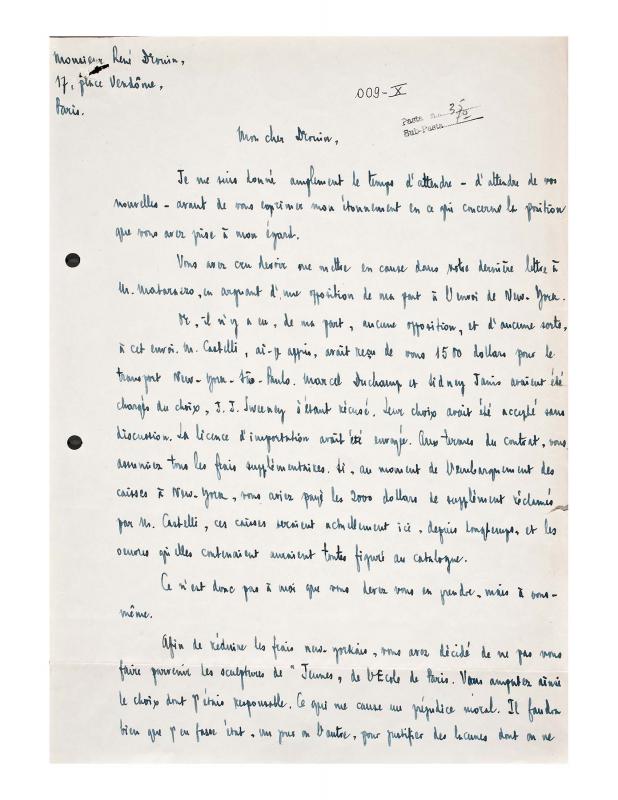 Monsieur René Drouin,
17, place Vendôme,
Paris.
009-X
Pasta n.o 35
Sub-Pasta 70
Mon cher Drouin,
Je me suis donné amplement le temps d'attendre - d'attendre de vos
nouvelles - avant de vous exprimer mon étonnement en ce qui concerne la position
que vous avez prise à mon égard.
Vous avez cru devoir me mettre en cause dans votre dernière lettre à
M. Matarazzo, en arguant d'une opposition de ma part à l'envoi de New-York.
Or, il n'y a eu, de ma part, aucune opposition, et d'aucune sorte,
à cet envoi. M. Castelli, ai-je appris, avait reçu de vous 1500 dollars pour le
transport New-York-São-Paulo. Marcel Duchamp et Sidney Janis avaient été
chargés du choix, J. J. Sweeney s'étant récusé. Leur choix avait été accepté sans
discussion. La licence d'importation avait été envoyée. Aux termes du contrat, vous
assumiez tous les frais supplémentaires. Si, au moment de l'embarquement des
caisses à New-York, vous aviez payé les 2000 dollars de supplément réclamés
par M. Castelli, ces caisses seraient actuellement ici, depuis longtemps, et les
oeuvres qu'elles contenaient auraient toutes figuré au catalogue.
Ce n'est donc pas à moi que vous devez vous en prendre, mais à vous-
même.
Afin de réduire les frais new-yorkais, vous avez décidé de ne pas nous
faire parvenir les sculptures de "Jeunes", de l'Ecole de Paris. Vous amputez ainsi
le choix dont j'étais responsable. Ce qui me cause un préjudice moral. Il faudra
bien que j'en fasse état, un jour ou l'autre, pour justifier des lacunes dont on ne